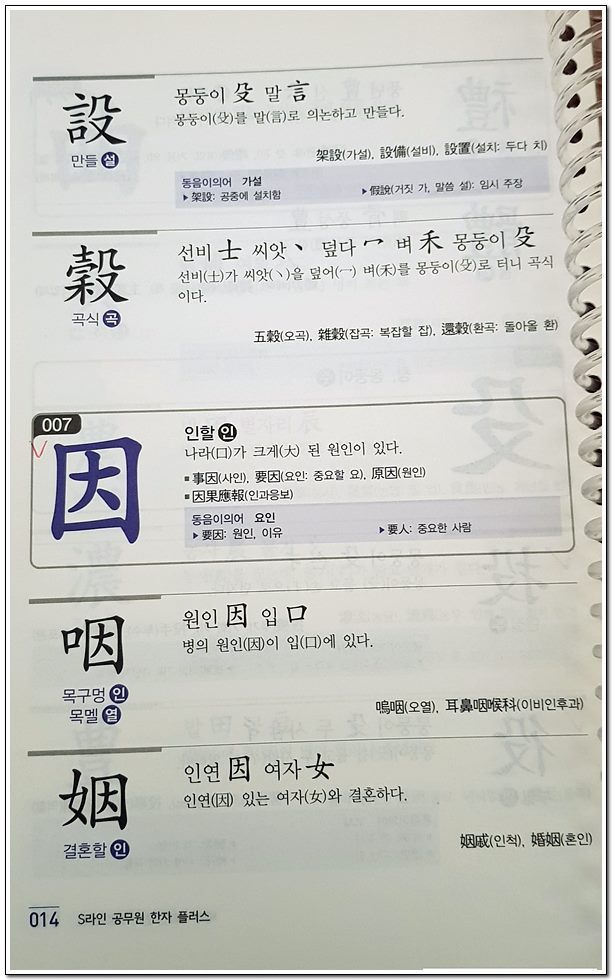 設
만들 설
몽둥이 殳 말 言
몽둥이(殳)를 말(言)로 의논하고 만들다.
架設(가설), 設備(설비), 設置(설치: 두다 치)
동음이의어 가설
▶架設: 공중에 설치함 ▶假說(거짓 가, 말씀 설): 임시 주장
穀
곡식 곡
선비 士 씨앗 丶 덮다 冖 벼 禾 몽둥이 殳
선비(士)가 씨앗(丶)을 덮어(冖) 벼(禾)를 몽둥이(殳)로 터니 곡식
이다.
五穀(오곡), 雜穀(잡곡: 복잡할 잡), 還穀(환곡: 돌아올 환)
007
因
인할 인
나라(口)가 크게(大) 된 원인이 있다.
■事因(사인), 要因(요인: 중요할 요), 原因(원인)
■因果應報(인과응보)
동음이의어 요인
▶要因: 원인, 이유 ▶要人: 중요한 사람
咽
목구멍 인
목멜 열
원인 因 입 口
병의 원인(因)이 입(口)에 있다.
嗚咽(오열), 耳鼻咽喉科(이비인후과)
姻
결혼할 인
인연 因 여자 女
인연(因) 있는 여자(女)와 결혼하다.
姻戚(인척), 婚姻(혼인)
014 S라인 공무원 한자 플러스